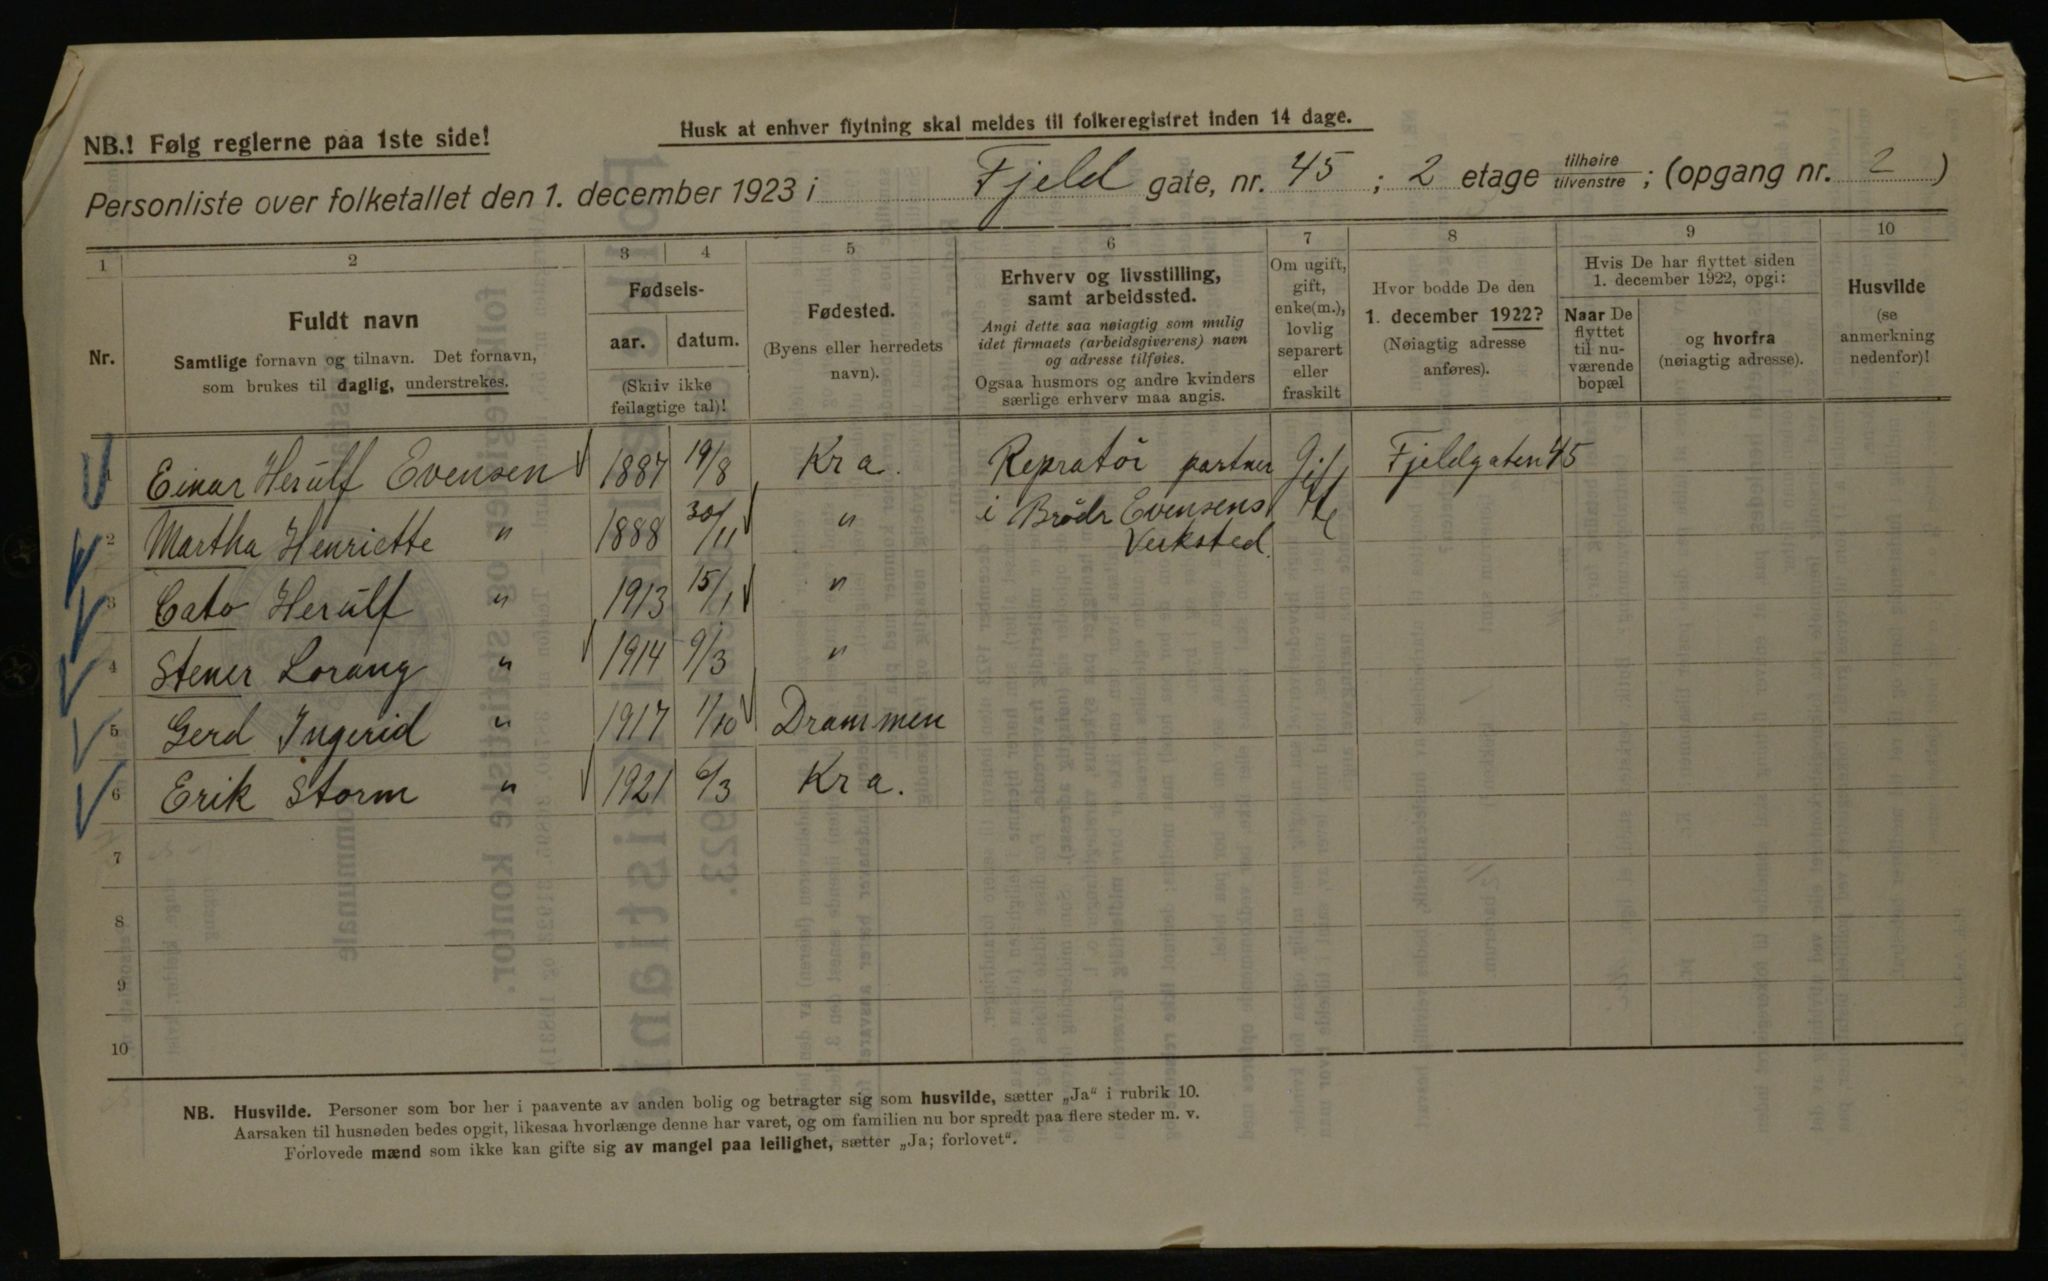 NB.! Følg reglerne paa 1ste side!
Husk at enhver flytning skal meldes til folkeregistret inden 14 dage.
Personliste over folketallet den 1. december 1923 i Fjeld gate, nr. 45 ; 2 etage tilhøire tilvenstre ; (opgang nr. 2 )
1 2 3 4 5 6 7 8 9 10
Nr.
Fuldt navn
Samtlige fornavn og tilnavn. Det fornavn,
som brukes til daglig, understrekes.
Fødsels-
aar. datum.
(Skriv ikke
feilagtige tal)!
Fødested.
(Byens eller herredets
navn).
Erhverv og livsstilling,
samt arbeidssted.
Angi dette saa nøiagtig som mulig
idet firmaets (arbeidsgiverens) navn
og adresse tilføies.
Ogsaa husmors og andre kvinders
særlige erhverv maa angis.
Om ugift,
gift,
enke(m.),
lovlig
separert
eller
fraskilt
Hvor bodde De den
1. december 1922?
(Nøiagtig adresse
anføres).
Hvis De har flyttet siden
1. december 1922, opgi:
Naar De
flyttet
til nu-
værende
bopæl
og hvorfra
(nøiagtig adresse).
Husvilde
(se
anmerkning
nedenfor)!
1 Einar Herulf Evensen 1887 19/8 Kra. Repratør partner Gifte Fjeldgaten 45
2 Martha Henriette " 1888 30/11 " i Brødr Evensens
Verksted.
3 Cato Herulf " 1913 15/1 "
4 Stener Lorang " 1914 9/3 "
5 Gerd Ingerid " 1917 1/10 Drammen
6 Erik Storm " 1921 6/3 Kra.
7
8
9
10
NB. Husvilde. Personer som bor her i paavente av anden bolig og betragter sig som husvilde, sætter „Ja“ i rubrik 10.
Aarsaken til husnøden bedes opgit, likesaa hvorlænge denne har varet, og om familien nu bor spredt paa flere steder m. v.
Forlovede mænd som ikke kan gifte sig av mangel paa leilighet, sætter „Ja; forlovet“.